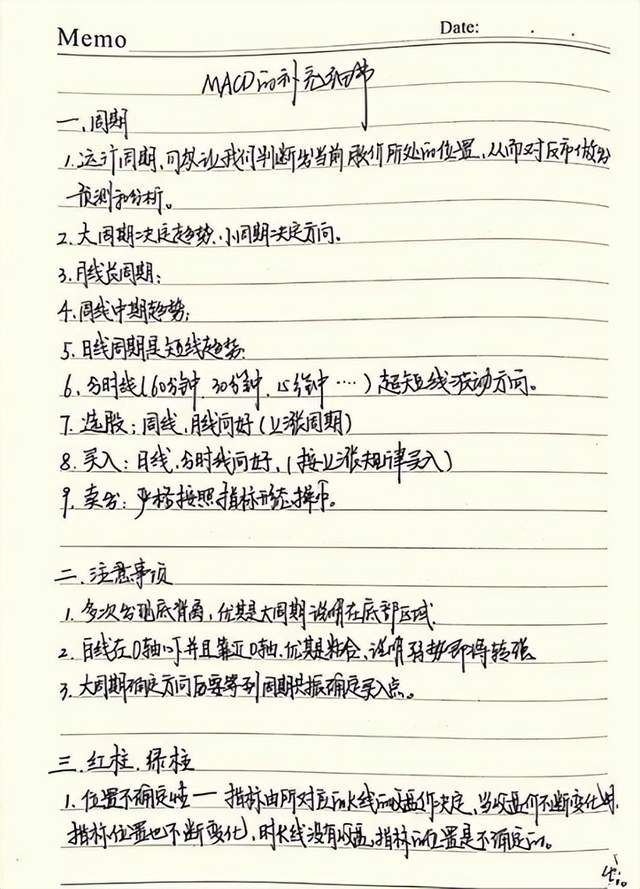 Memo
Date:
MACD的补充细节
一、周期
1. 运行周期,可以让我们判断出当前股价所处的位置,从而对后市做出
预测和分析。
2. 大周期决定趋势,小周期决定方向。
3. 月线长周期;
4. 周线中期趋势;
5. 日线周期是短线趋势;
6. 分时线(60分钟、30分钟、15分钟····)超短线波动方向。
7. 选股:周线、月线向好(上涨周期)
8. 买入:日线、分时线向好,(按上涨规律买入)
9. 卖出:严格按照指标形态操作。
二、注意事项
1. 多次出现底背离,尤其是大周期说明在底部区域.
2. 白线在0轴以下并且靠近0轴,尤其是粘合,说明弱势即将转强
3. 大周期确定方向后要等到周期共振确定买入点。
三、红柱、绿柱
1. 位置不确定性 — 指标由所对应的K线的收盘价决定,当收盘价不断变化时,
指标位置也不断变化),时K线没有收盘,指标的位置是不确定的。